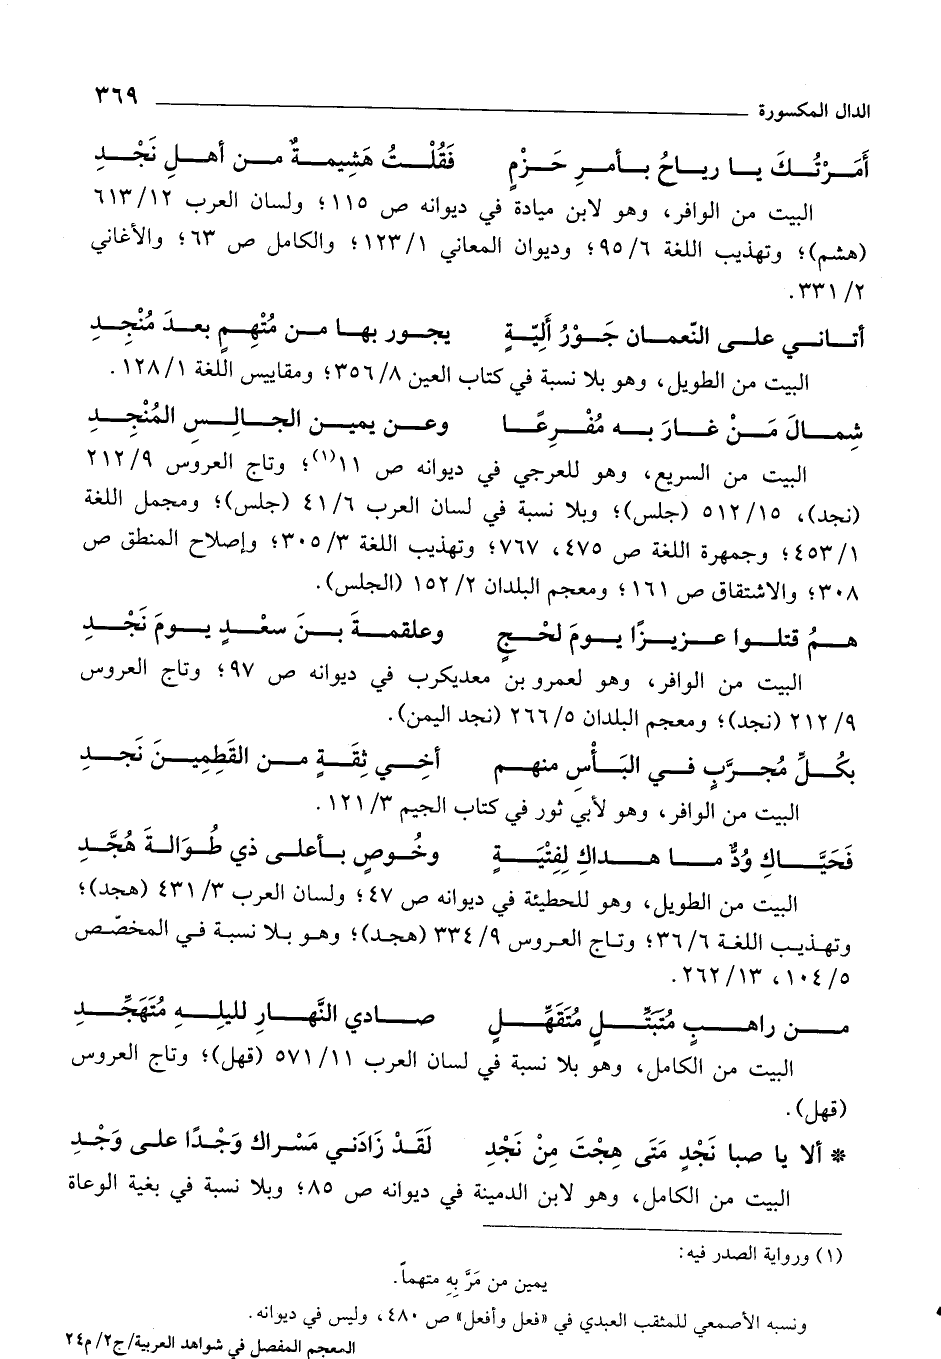 الدال المكسورة ٣٦٩
أَمَرْتُكَ يا رياحُ بأمرِ حَزْمٍ فَقُلْتُ هَشِيمةٌ من أهلِ نَجْدِ
البيت من الوافر، وهو لابن ميادة في ديوانه ص ١١٥؛ ولسان العرب ٦١٣/١٢
(هشم)؛ وتهذيب اللغة ٩٥/٦؛ وديوان المعاني ١٢٣/١؛ والكامل ص ٦٣؛ والأغاني
٣٣١/٢.
أتاني على النّعمان جَوْرُ أَلِيّةٍ يجور بها من مُتْهِمٍ بعدَ مُنْجِدِ
البيت من الطويل، وهو بلا نسبة في كتاب العين ٣٥٦/٨؛ ومقاييس اللّغة ١٢٨/١.
شِمالَ مَنْ غارَ به مُفْرِعًا وعن يمينِ الجالِسِ المُنْجِدِ
البيت من السريع، وهو للعرجي في ديوانه ص ١١(١)؛ وتاج العروس ٢١٢/٩
(نجد)، ٥١٢/١٥ (جلس)؛ وبلا نسبة في لسان العرب ٤١/٦ (جلس)؛ ومجمل اللغة
٤٥٣/١؛ وجمهرة اللغة ص ٤٧٥، ٧٦٧؛ وتهذيب اللغة ٣٠٥/٣؛ وإصلاح المنطق ص
٣٠٨؛ والاشتقاق ص ١٦١؛ ومعجم البلدان ١٥٢/٢ (الجلس).
همُ قتلوا عزيزًا يومَ لحْجٍ وعلقمةَ بنَ سعْدٍ يومَ نَجْدِ
البيت من الوافر، وهو لعمرو بن معديكرب في ديوانه ص ٩٧؛ وتاج العروس
٢١٢/٩ (نجد)؛ ومعجم البلدان ٢٦٦/٥ (نجد اليمن).
بكُلِّ مُجرَّبٍ في البَأْسِ منهم أخِي ثِقَةٍ من القَطِمِينَ نَجدِ
البيت من الوافر، وهو لأبي ثور في كتاب الجيم ١٢١/٣.
فَحَيَّاكِ وُدٌّ ما هداكِ لِفِتْيَةٍ وخُوصٍ بأعلى ذي طُوَالةَ هُجَّدِ
البيت من الطويل، وهو للحطيئة في ديوانه ص ٤٧؛ ولسان العرب ٤٣١/٣ (هجد)؛
وتهذيب اللغة ٣٦/٦؛ وتاج العروس ٣٣٤/٩ (هجد)؛ وهو بلا نسبة في المخصّص
١٠٤/٥، ٢٦٢/١٣.
من راهبٍ مُتبَتِّلٍ مُتَقَهِّلٍ صادي النَّهارِ لليلِهِ مُتَهَجِّدِ
البيت من الكامل، وهو بلا نسبة في لسان العرب ٥٧١/١١ (قهل)؛ وتاج العروس
(قهل).
* ألا يا صبا نَجْدٍ مَتَى هِجْتَ مِنْ نَجْدِ لَقَدْ زَادَني مَسْراكَ وَجْدًا على وَجْدِ
البيت من الكامل، وهو لابن الدمينة في ديوانه ص ٨٥؛ وبلا نسبة في بغية الوعاة
(١) ورواية الصدر فيه:
يمين من مَرَّ بِهِ متهماً.
ونسبه الأصمعي للمثقب العبدي في «فعل وأفعل» ص ٤٨٠، وليس في ديوانه.
المعجم المفصل في شواهد العربية/ج٢/م٢٤